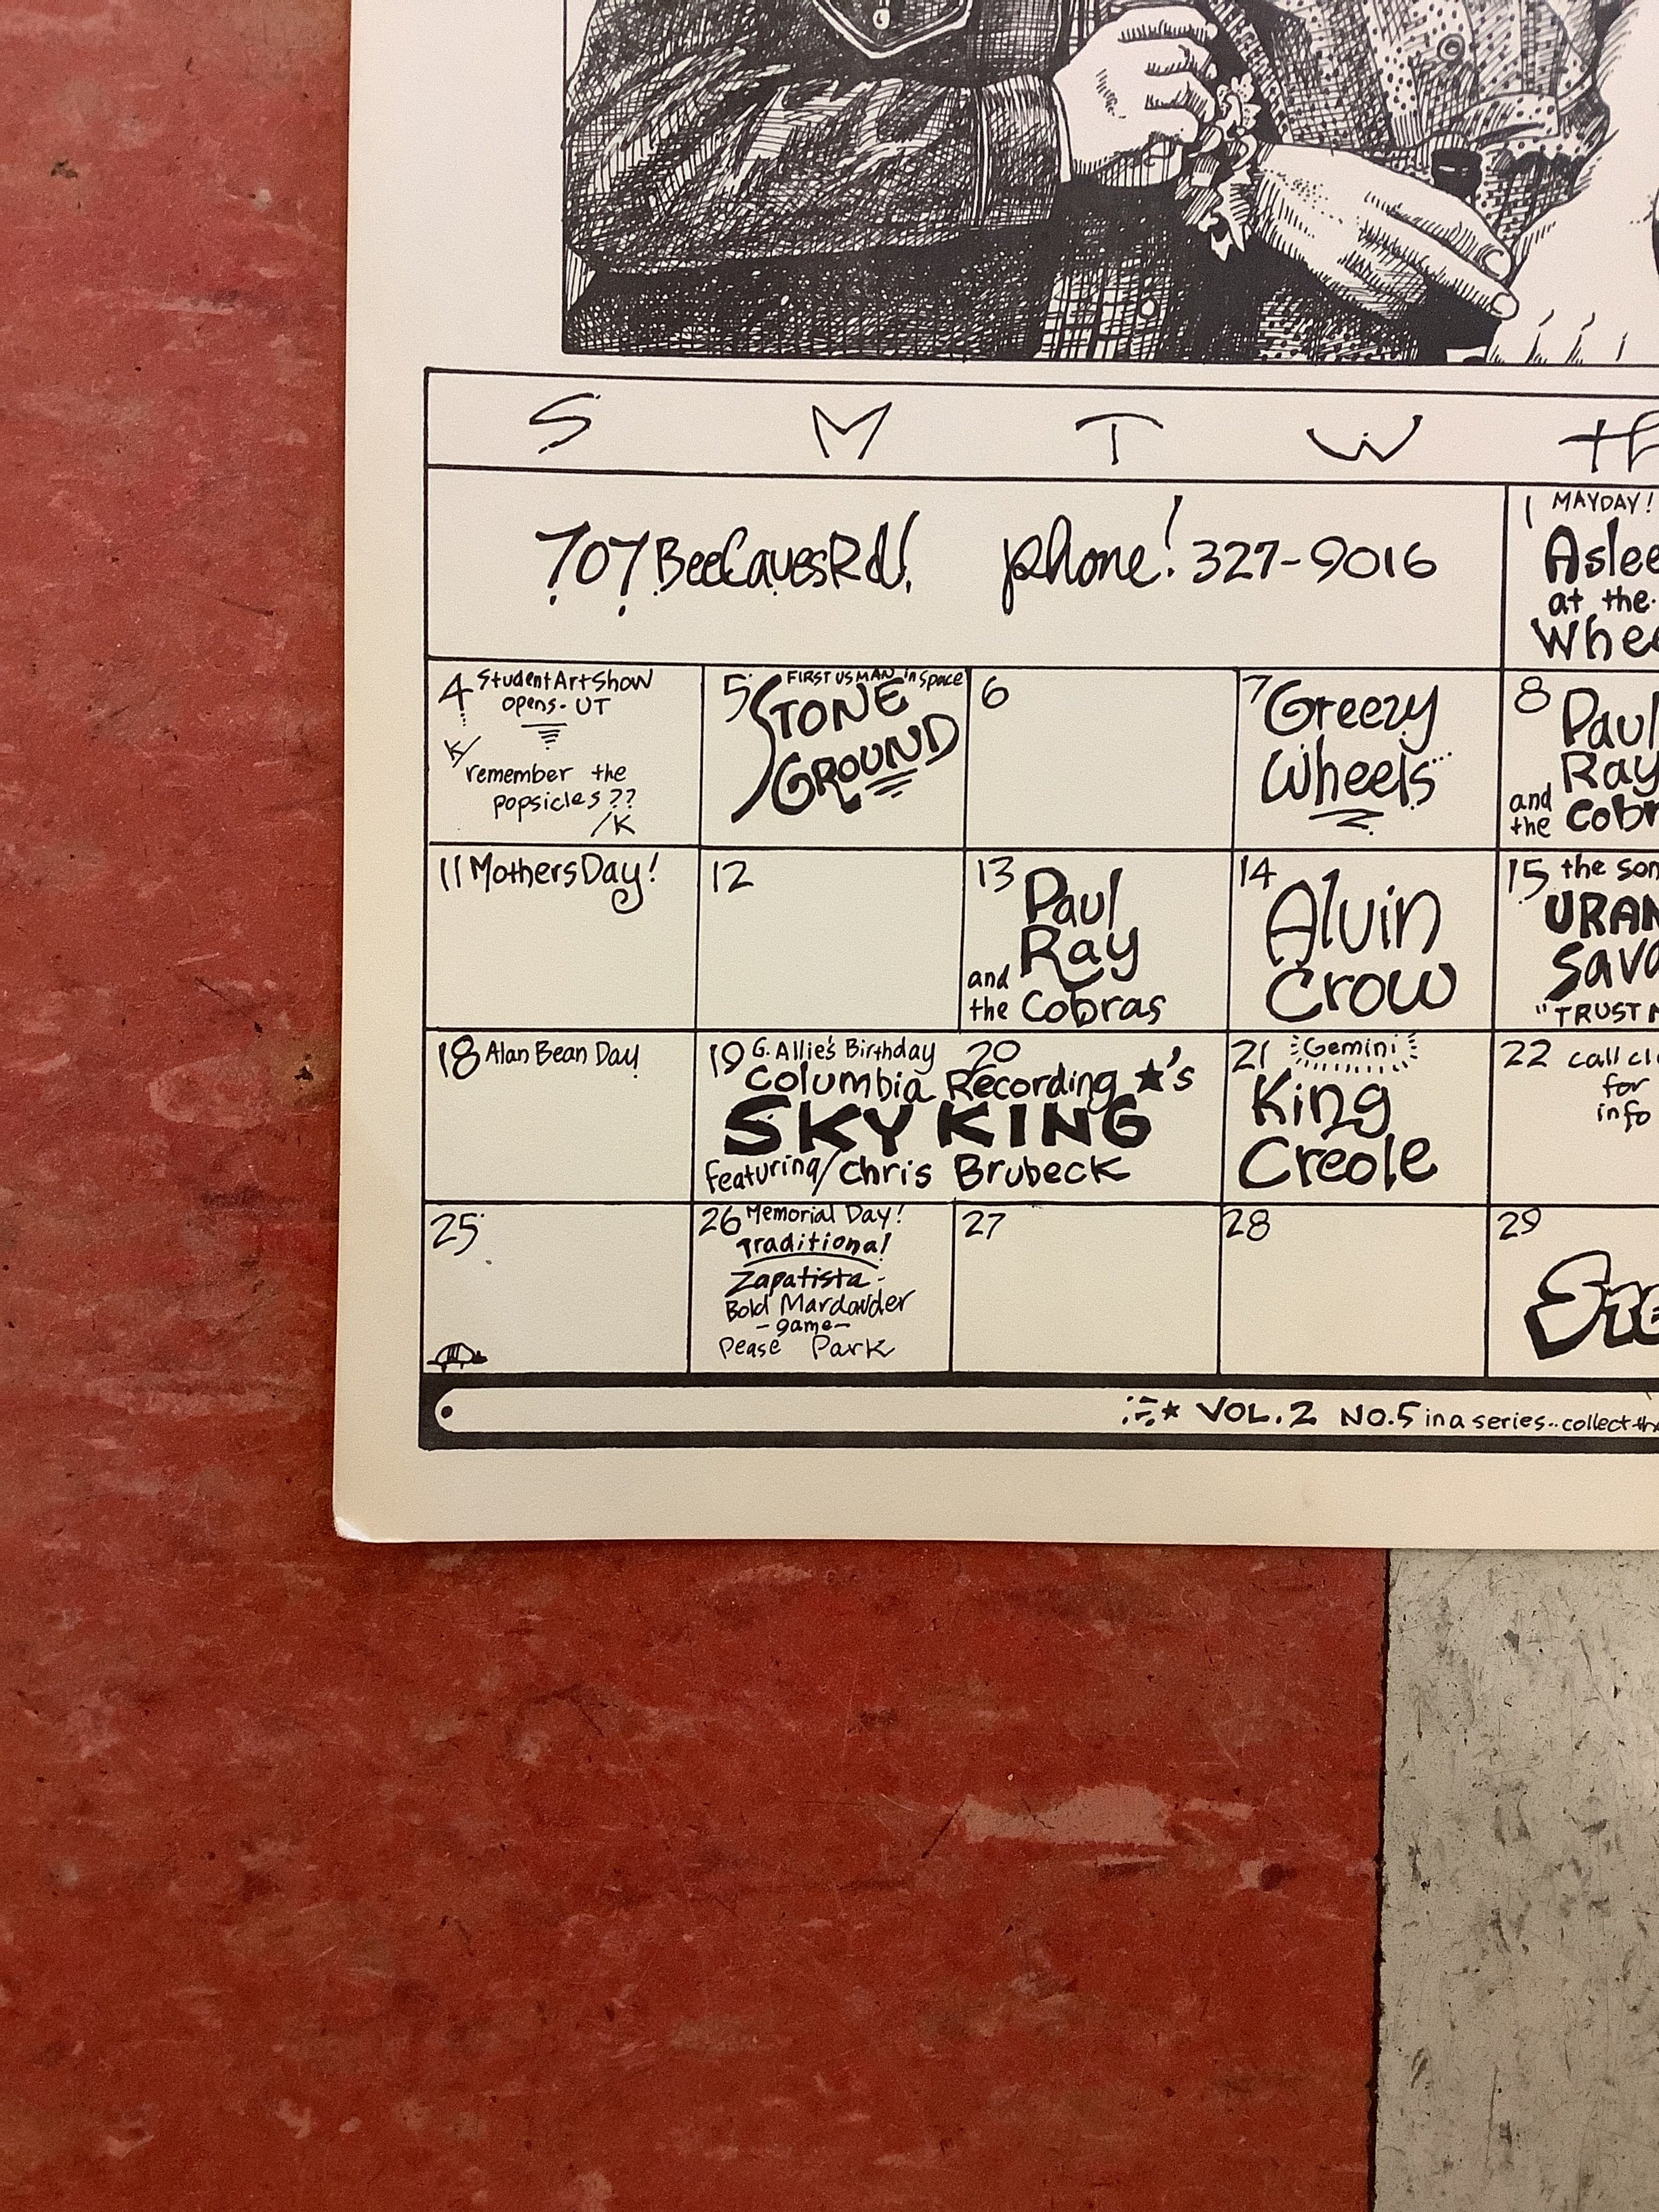 S M T W
707 Bee Caves Rd! phone! 327-9016
1 MAYDAY!
at the
4 Student Art Show
opens- UT
K/
remember the
popsicles??
/K
5 FIRST US MAN in space
STONE
GROUND
6
7 Greezy
Wheels
8 Paul
Ray
and
the
11 Mothers Day!
12
13 Paul
Ray
and
the Cobras
14 Alvin
Crow
15 the
"TRUST
18 Alan Bean Day!
19 G. Allie's Birthday 20
Columbia Recording ★'s
SKY KING
featuring/Chris Brubeck
21 Gemini
King
Creole
22 call
for
info
25
26 Memorial Day!
Traditional
Zapatista-
Bold Mardauder
-game-
Pease Park
27
28
29
VOL.2 NO.5 in a series..collect